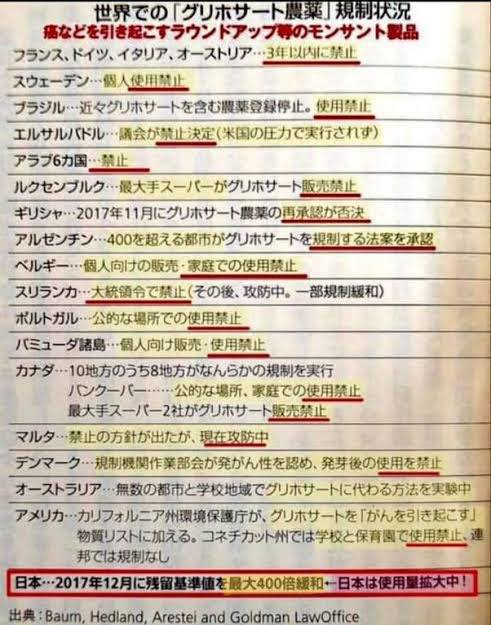 世界での「グリホサート農薬」規制状況
癌などを引き起こすラウンドアップ等のモンサント製品
フランス、ドイツ、イタリア、オーストリア…3年以内に禁止
スウェーデン…個人使用禁止
ブラジル…近々グリホサートを含む農薬登録停止。使用禁止
エルサルバドル…議会が禁止決定(米国の圧力で実行されず)
アラブ6カ国…禁止
ルクセンブルク…最大手スーパーがグリホサート販売禁止
ギリシャ…2017年11月にグリホサート農薬の再承認が否決
アルゼンチン…400を超える都市がグリホサートを規制する法案を承認
ベルギー…個人向けの販売・家庭での使用禁止
スリランカ…大統領令で禁止(その後、攻防中。一部規制緩和)
ポルトガル…公的な場所での使用禁止
バミューダ諸島…個人向け販売・使用禁止
カナダ…10地方のうち8地方がなんらかの規制を実行
バンクーバー……公的な場所、家庭での使用禁止
最大手スーパー2社がグリホサート販売禁止
マルタ…禁止の方針が出たが、現在攻防中
デンマーク…規制機関作業部会が発がん性を認め、発芽後の使用を禁止
オーストラリア…無数の都市と学校地域でグリホサートに代わる方法を実験中
アメリカ…カリフォルニア州環境保護庁が、グリホサートを「がんを引き起こす」
物質リストに加える。コネチカット州では学校と保育園で使用禁止、連
邦では規制なし
日本…2017年12月に残留基準値を最大400倍緩和←日本は使用量拡大中!
出典:Baum, Hedland, Arestei and Goldman LawOffice